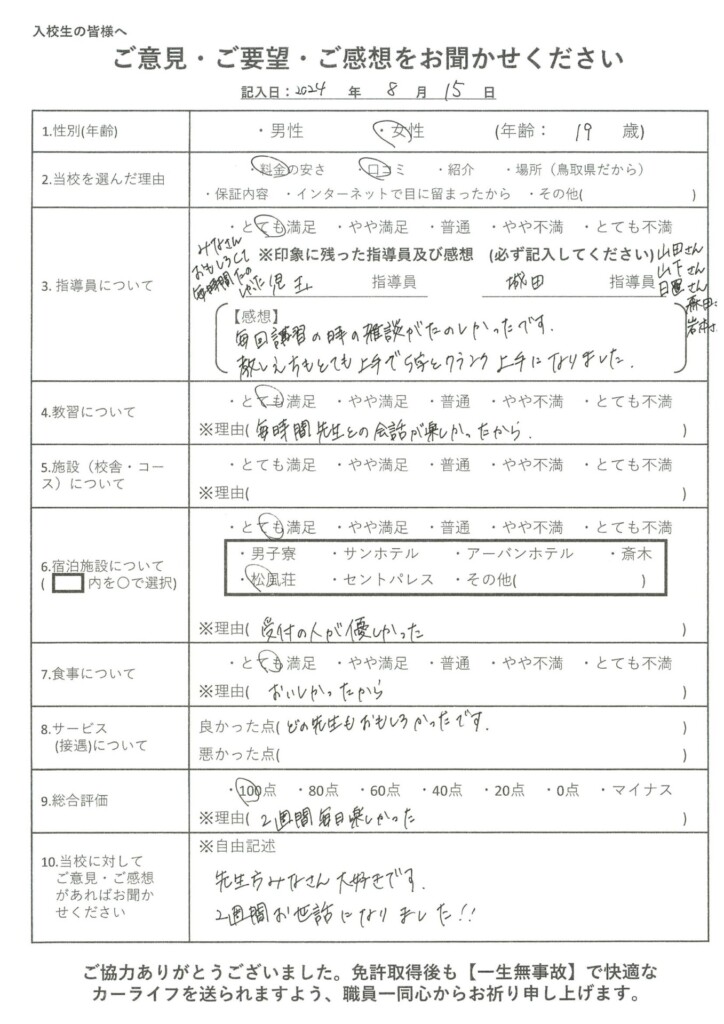 入校生の皆様へ
ご意見・ご要望・ご感想をお聞かせください
記入日：2024 年 8 月 15 日
1.性別(年齢) ・男性 ・女性 (年齢： 19 歳)
2.当校を選んだ理由 ・料金の安さ ・口コミ ・紹介 ・場所（鳥取県だから）
・保証内容 ・インターネットで目に留まったから ・その他( )
3.指導員について ・とても満足 ・やや満足 ・普通 ・やや不満 ・とても不満
みなさん
おもしろくて
毎時間たの
しかった
※印象に残った指導員及び感想 (必ず記入してください)
児玉 指導員 城田 指導員
山田さん
山下さん
日置さん
森田
岩本さ
【感想】
毎回講習の時の雑談がたのしかったです。
教え方もとても上手でS字とクランク上手になりました。
4.教習について ・とても満足 ・やや満足 ・普通 ・やや不満 ・とても不満
※理由( 毎時間先生との会話が楽しかったから。 )
5.施設（校舎・コース）について ・とても満足 ・やや満足 ・普通 ・やや不満 ・とても不満
※理由( )
6.宿泊施設について
( 内を○で選択)
・とても満足 ・やや満足 ・普通 ・やや不満 ・とても不満
・男子寮 ・サンホテル ・アーバンホテル ・斎木
・松風荘 ・セントパレス ・その他( )
※理由( 受付の人が優しかった )
7.食事について ・とても満足 ・やや満足 ・普通 ・やや不満 ・とても不満
※理由( おいしかったから )
8.サービス
(接遇)について
良かった点( どの先生もおもしろかったです。 )
悪かった点( )
9.総合評価 ・100点 ・80点 ・60点 ・40点 ・20点 ・0点 ・マイナス
※理由( 2週間毎日楽しかった )
10.当校に対して
ご意見・ご感想
があればお聞か
せください
※自由記述
先生方みなさん大好きです。
2週間お世話になりました!!
ご協力ありがとうございました。免許取得後も【一生無事故】で快適な
カーライフを送られますよう、職員一同心からお祈り申し上げます。